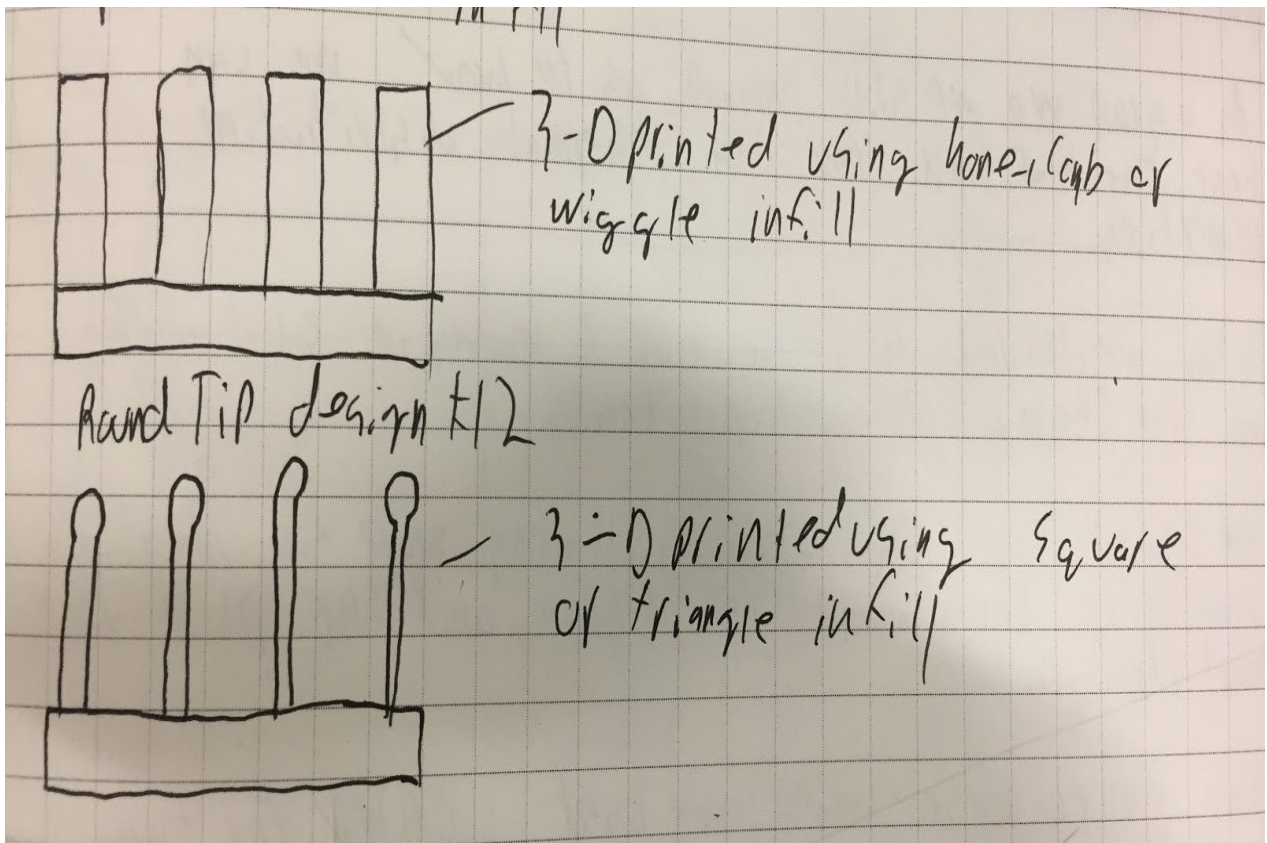 infill
3-D printed using honeycomb or
wiggle infill
Round Tip design #12
3-D printed using square
or triangle infill